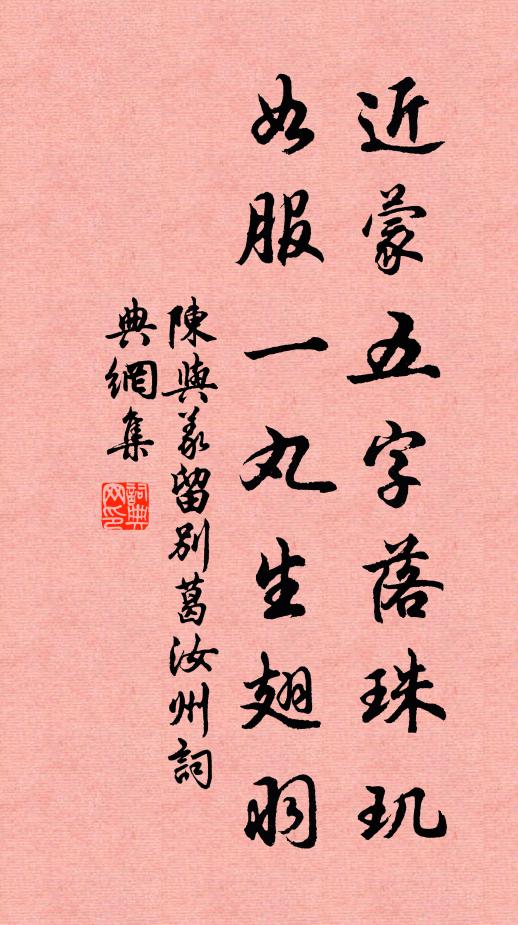 近蒙五字落珠玑
如服一丸生翅羽
陳與义留別葛汝州詞
典網集
詞典网印